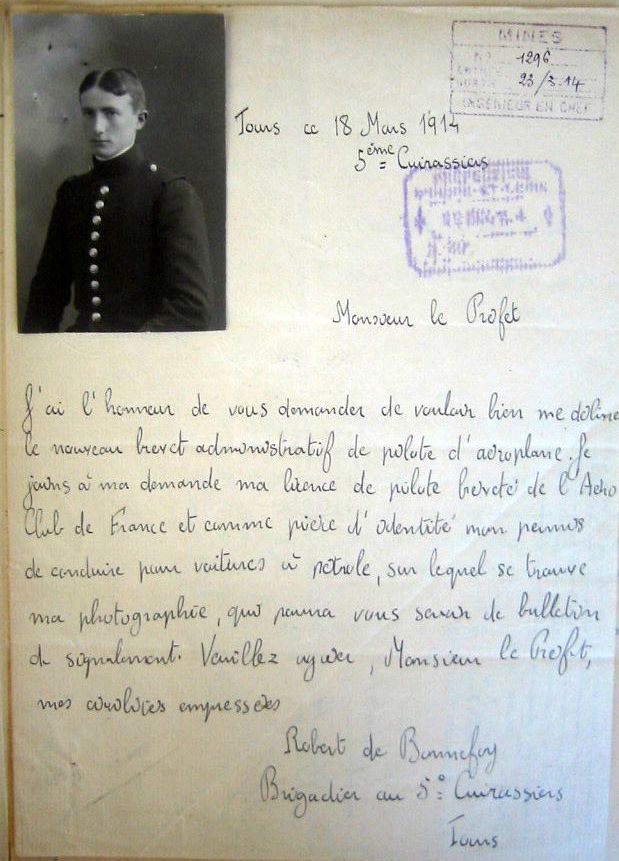 MINES
N° 1296
23/3.14
INGÉNIEUR EN CHEF
Tours ce 18 Mars 1914
5ème Cuirassiers
Monsieur le Préfet
J'ai l'honneur de vous demander de vouloir bien me délivrer
le nouveau brevet administratif de pilote d'aéroplane. Je
joins à ma demande ma licence de pilote breveté de l'Aéro
Club de France et comme pièce d'identité mon permis
de conduire pour voitures à pétrole, sur lequel se trouve
ma photographie, qui pourra vous servir de bulletin
de signalement. Veuillez agréer, Monsieur le Préfet,
mes civilités empressées
Robert de Bonnefoy
Brigadier au 5e Cuirassiers
Tours